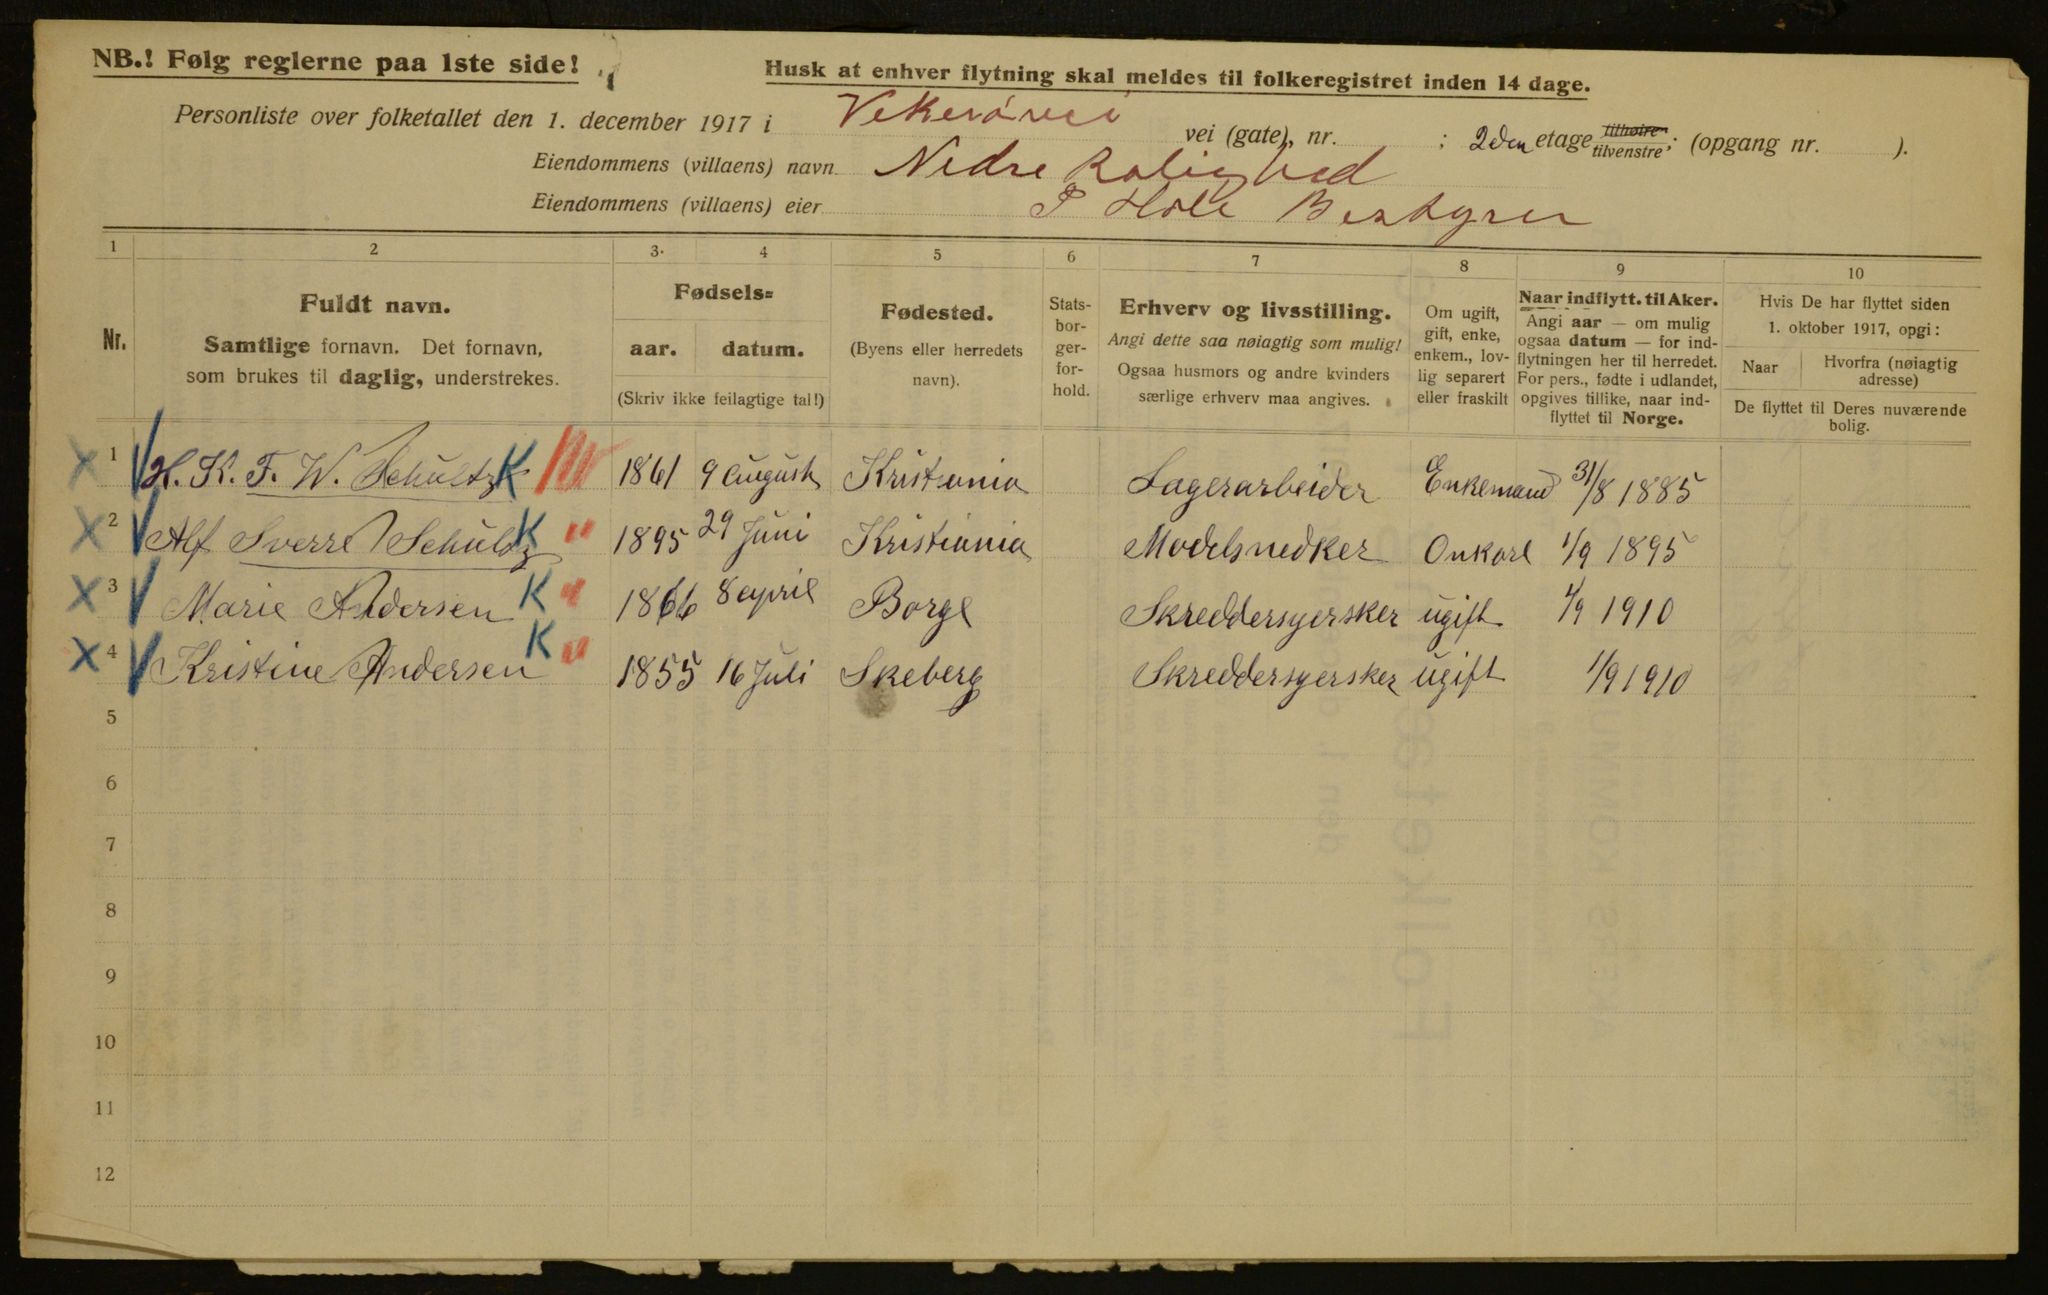 NB.! Følg reglerne paa 1ste side!
Husk at enhver flytning skal meldes til folkeregistret inden 14 dage.
Personliste over folketallet den 1. december 1917 i Vekerövei vei (gate), nr. ; 2den etage tilhøire tilvenstre; (opgang nr. ).
Eiendommens (villaens) navn Nedre Rolighed
Eiendommens (villaens) eier P Holt Bestyrer
1 2 3. 4 5 6 7 8 9 10
Nr.
Fuldt navn.
Samtlige fornavn. Det fornavn,
som brukes til daglig, understrekes.
Fødsels=
aar. datum.
(Skriv ikke feilagtige tal!)
Fødested.
(Byens eller herredets
navn).
Stats-
bor-
ger-
for-
hold.
Erhverv og livsstilling.
Angi dette saa nøiagtig som mulig!
Ogsaa husmors og andre kvinders
særlige erhverv maa angives.
Om ugift,
gift, enke,
enkem., lov-
lig separert
eller fraskilt
Naar indflytt. til Aker.
Angi aar — om mulig
ogsaa datum — for ind-
flytningen her til herredet.
For pers., fødte i udlandet,
opgives tillike, naar ind-
flyttet til Norge.
Hvis De har flyttet siden
1. oktober 1917, opgi:
Naar
Hvorfra (nøiagtig
adresse)
De flyttet til Deres nuværende
bolig.
X 1 H. K. F. W. Schultz K 1861 9 August Kristiania Lagerarbeider Enkemand 31/8 1885
X 2 Alf Sverre Schultz K " 1895 29 Juni Kristiania Modelsnedker Onkarl 1/9 1895
X 3 Marie Andersen K " 1866 8 april Borge Skreddersyersker ugift 1/9 1910
X 4 Kristine Andersen K " 1855 16 Juli Skeberg Skreddersyersker ugift 1/9 1910
5
6
7
8
9
10
11
12